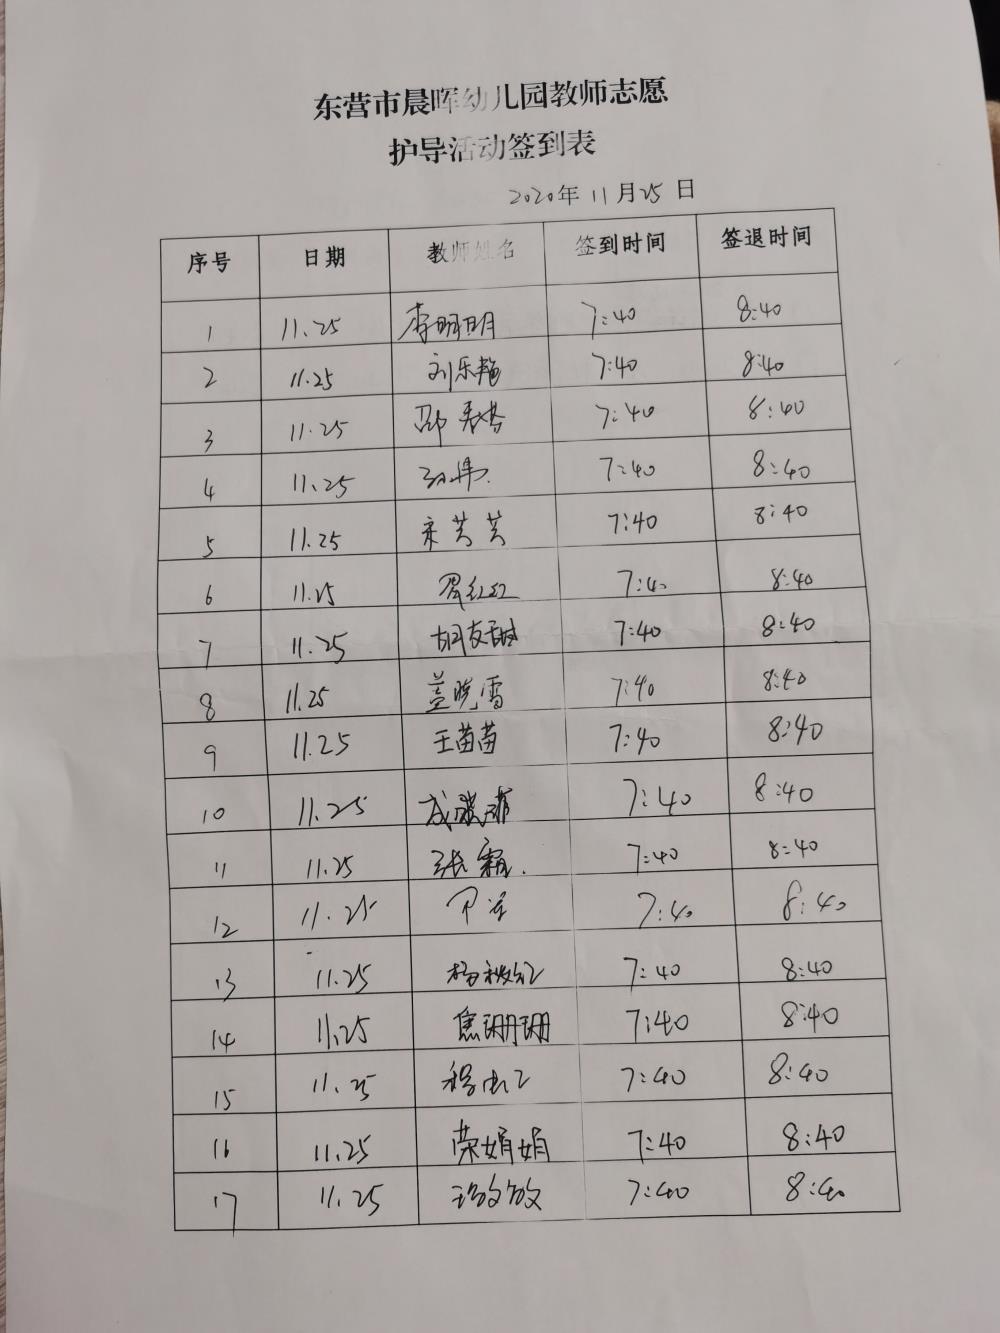 东营市晨晖幼儿园教师志愿
护导活动签到表
2020年 11月25日
序号 日期 教师姓名 签到时间 签退时间
1 11.25 李明明 7:40 8:40
2 11.25 刘乐艳 7:40 8:40
3 11.25 邵春香 7:40 8:40
4 11.25 孙伟 7:40 8:40
5 11.25 宋芳芳 7:40 8:40
6 11.25 红红 7:40 8:40
7 11.25 胡友甜 7:40 8:40
8 11.25 盖晓雪 7:40 8:40
9 11.25 王苗苗 7:40 8:40
10 11.25 成 7:40 8:40
11 11.25 张霜. 7:40 8:40
12 11.25 7:40 8:40
13 11.25 杨秋红 7:40 8:40
14 11.25 焦珊珊 7:40 8:40
15 11.25 程 7:40 8:40
16 11.25 荣娟娟 7:40 8:40
17 11.25 敏敏 7:40 8:40